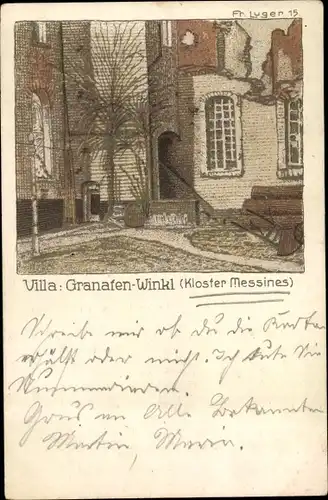 Fr. Lyger 15.
Villa: Granaten-Winkl (Kloster Messines)
Schreibe mir ob du die Karte
erhälst oder nicht. Ich tute Sie
Gruss an Alle Bekannten
Martin, Maria.